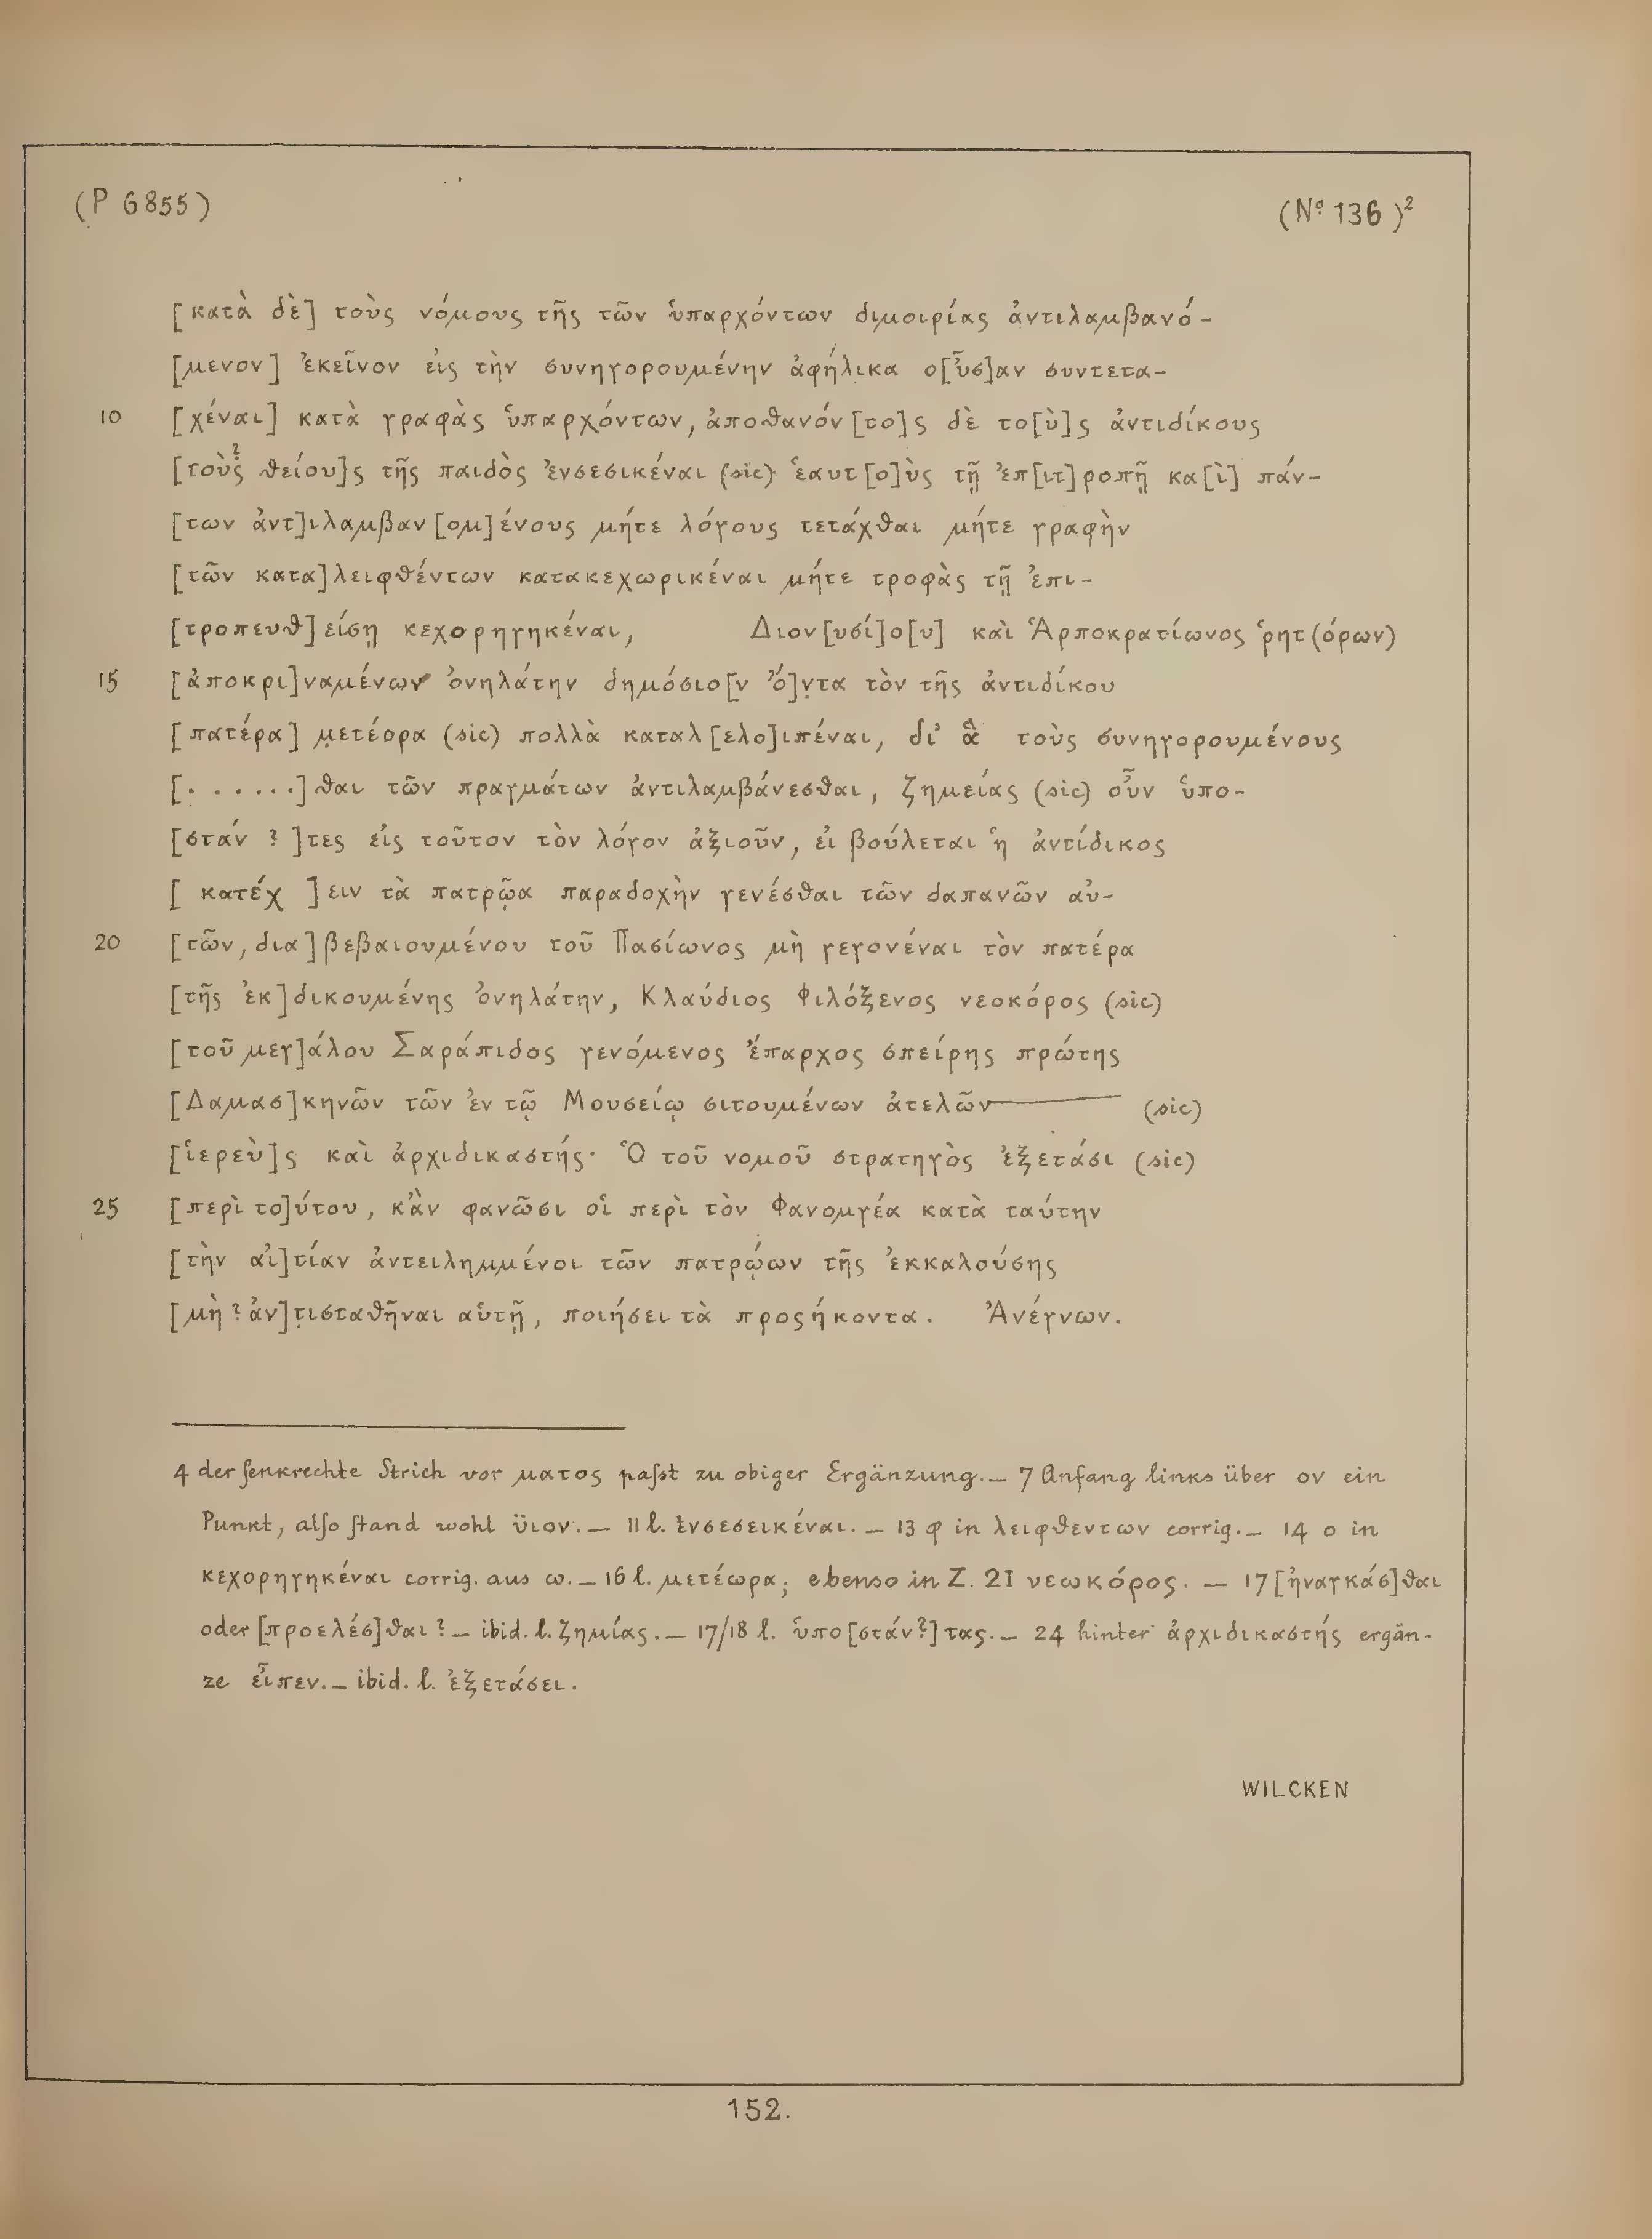 (P 6855) (Nº 136)²
[κατὰ δὲ] τοὺς νόμους τῆς τῶν ὑπαρχόντων διμοιρίας ἀντιλαμβανό-
[μενον] ἐκεῖνον εἰς τὴν συνηγορουμένην ἀφήλικα ο[ὖσ]αν συντετα-
10 [χέναι] κατὰ γραφὰς ὑπαρχόντων, ἀποθανόν[το]ς δὲ το[ὺ]ς ἀντιδίκους
[τοὺς? θείου]ς τῆς παιδὸς ἐνσεσικέναι (sic) ἑαυτ[ο]ὺς τῇ ἐπ[ιτ]ροπῇ κα[ὶ] πάν-
[των ἀντ]ιλαμβαν[ομ]ένους μήτε λόγους τετάχθαι μήτε γραφὴν
[τῶν κατα]λειφθέντων κατακεχωρικέναι μήτε τροφὰς τῇ ἐπι-
[τροπευθ]είσῃ κεχορηγηκέναι, Διον[υσί]ο[υ] καὶ Ἁρποκρατίωνος ῥητ(όρων)
15 [ἀποκρι]ναμένων ὀνηλάτην δημόσιο[ν ὄ]ντα τὸν τῆς ἀντιδίκου
[πατέρα] μετέορα (sic) πολλὰ καταλ[ελο]ιπέναι, δι' ἃ τοὺς συνηγορουμένους
[......]θαι τῶν πραγμάτων ἀντιλαμβάνεσθαι, ζημείας (sic) οὖν ὑπο-
[στάν ?]τες εἰς τοῦτον τὸν λόγον ἀξιοῦν, εἰ βούλεται ἡ ἀντίδικος
[κατέχ]ειν τὰ πατρῷα παραδοχὴν γενέσθαι τῶν δαπανῶν αὐ-
20 [τῶν, δια]βεβαιουμένου τοῦ Πασίωνος μὴ γεγονέναι τὸν πατέρα
[τῆς ἐκ]δικουμένης ὀνηλάτην, Κλαύδιος Φιλόξενος νεοκόρος (sic)
[τοῦ μεγ]άλου Σαράπιδος γενόμενος ἔπαρχος σπείρης πρώτης
[Δαμασ]κηνῶν τῶν ἐν τῷ Μουσείῳ σιτουμένων ἀτελῶν— (sic)
[ἱερεὺ]ς καὶ ἀρχιδικαστής· Ὁ τοῦ νομοῦ στρατηγὸς ἐξετάσι (sic)
25 [περὶ το]ύτου, κἂν φανῶσι οἱ περὶ τὸν Φανομγέα κατὰ ταύτην
[τὴν αἰ]τίαν ἀντειλημμένοι τῶν πατρῴων τῆς ἐκκαλούσης
[μὴ? ἀν]τισταθῆναι αὑτῇ, ποιήσει τὰ προςήκοντα. Ἀνέγνων.
4 der senkrechte Strich vor ματος passt zu obiger Ergänzung. — 7 Anfang links über ον ein
Punkt, also stand wohl ϋιον. — 11 l. ἐνσεσεικέναι. — 13 φ in λειφθεντων corrig. — 14 ο in
κεχορηγηκέναι corrig. aus ω. — 16 l. μετέωρα; ebenso in Z. 21 νεωκόρος. — 17 [ἠναγκάσ]θαι
oder [προελέσ]θαι? — ibid. l. ζημίας. — 17/18 l. ὑπο[στάν?]τας. — 24 hinter ἀρχιδικαστής ergän-
ze εἶπεν. — ibid. l. ἐξετάσει.
WILCKEN
152.